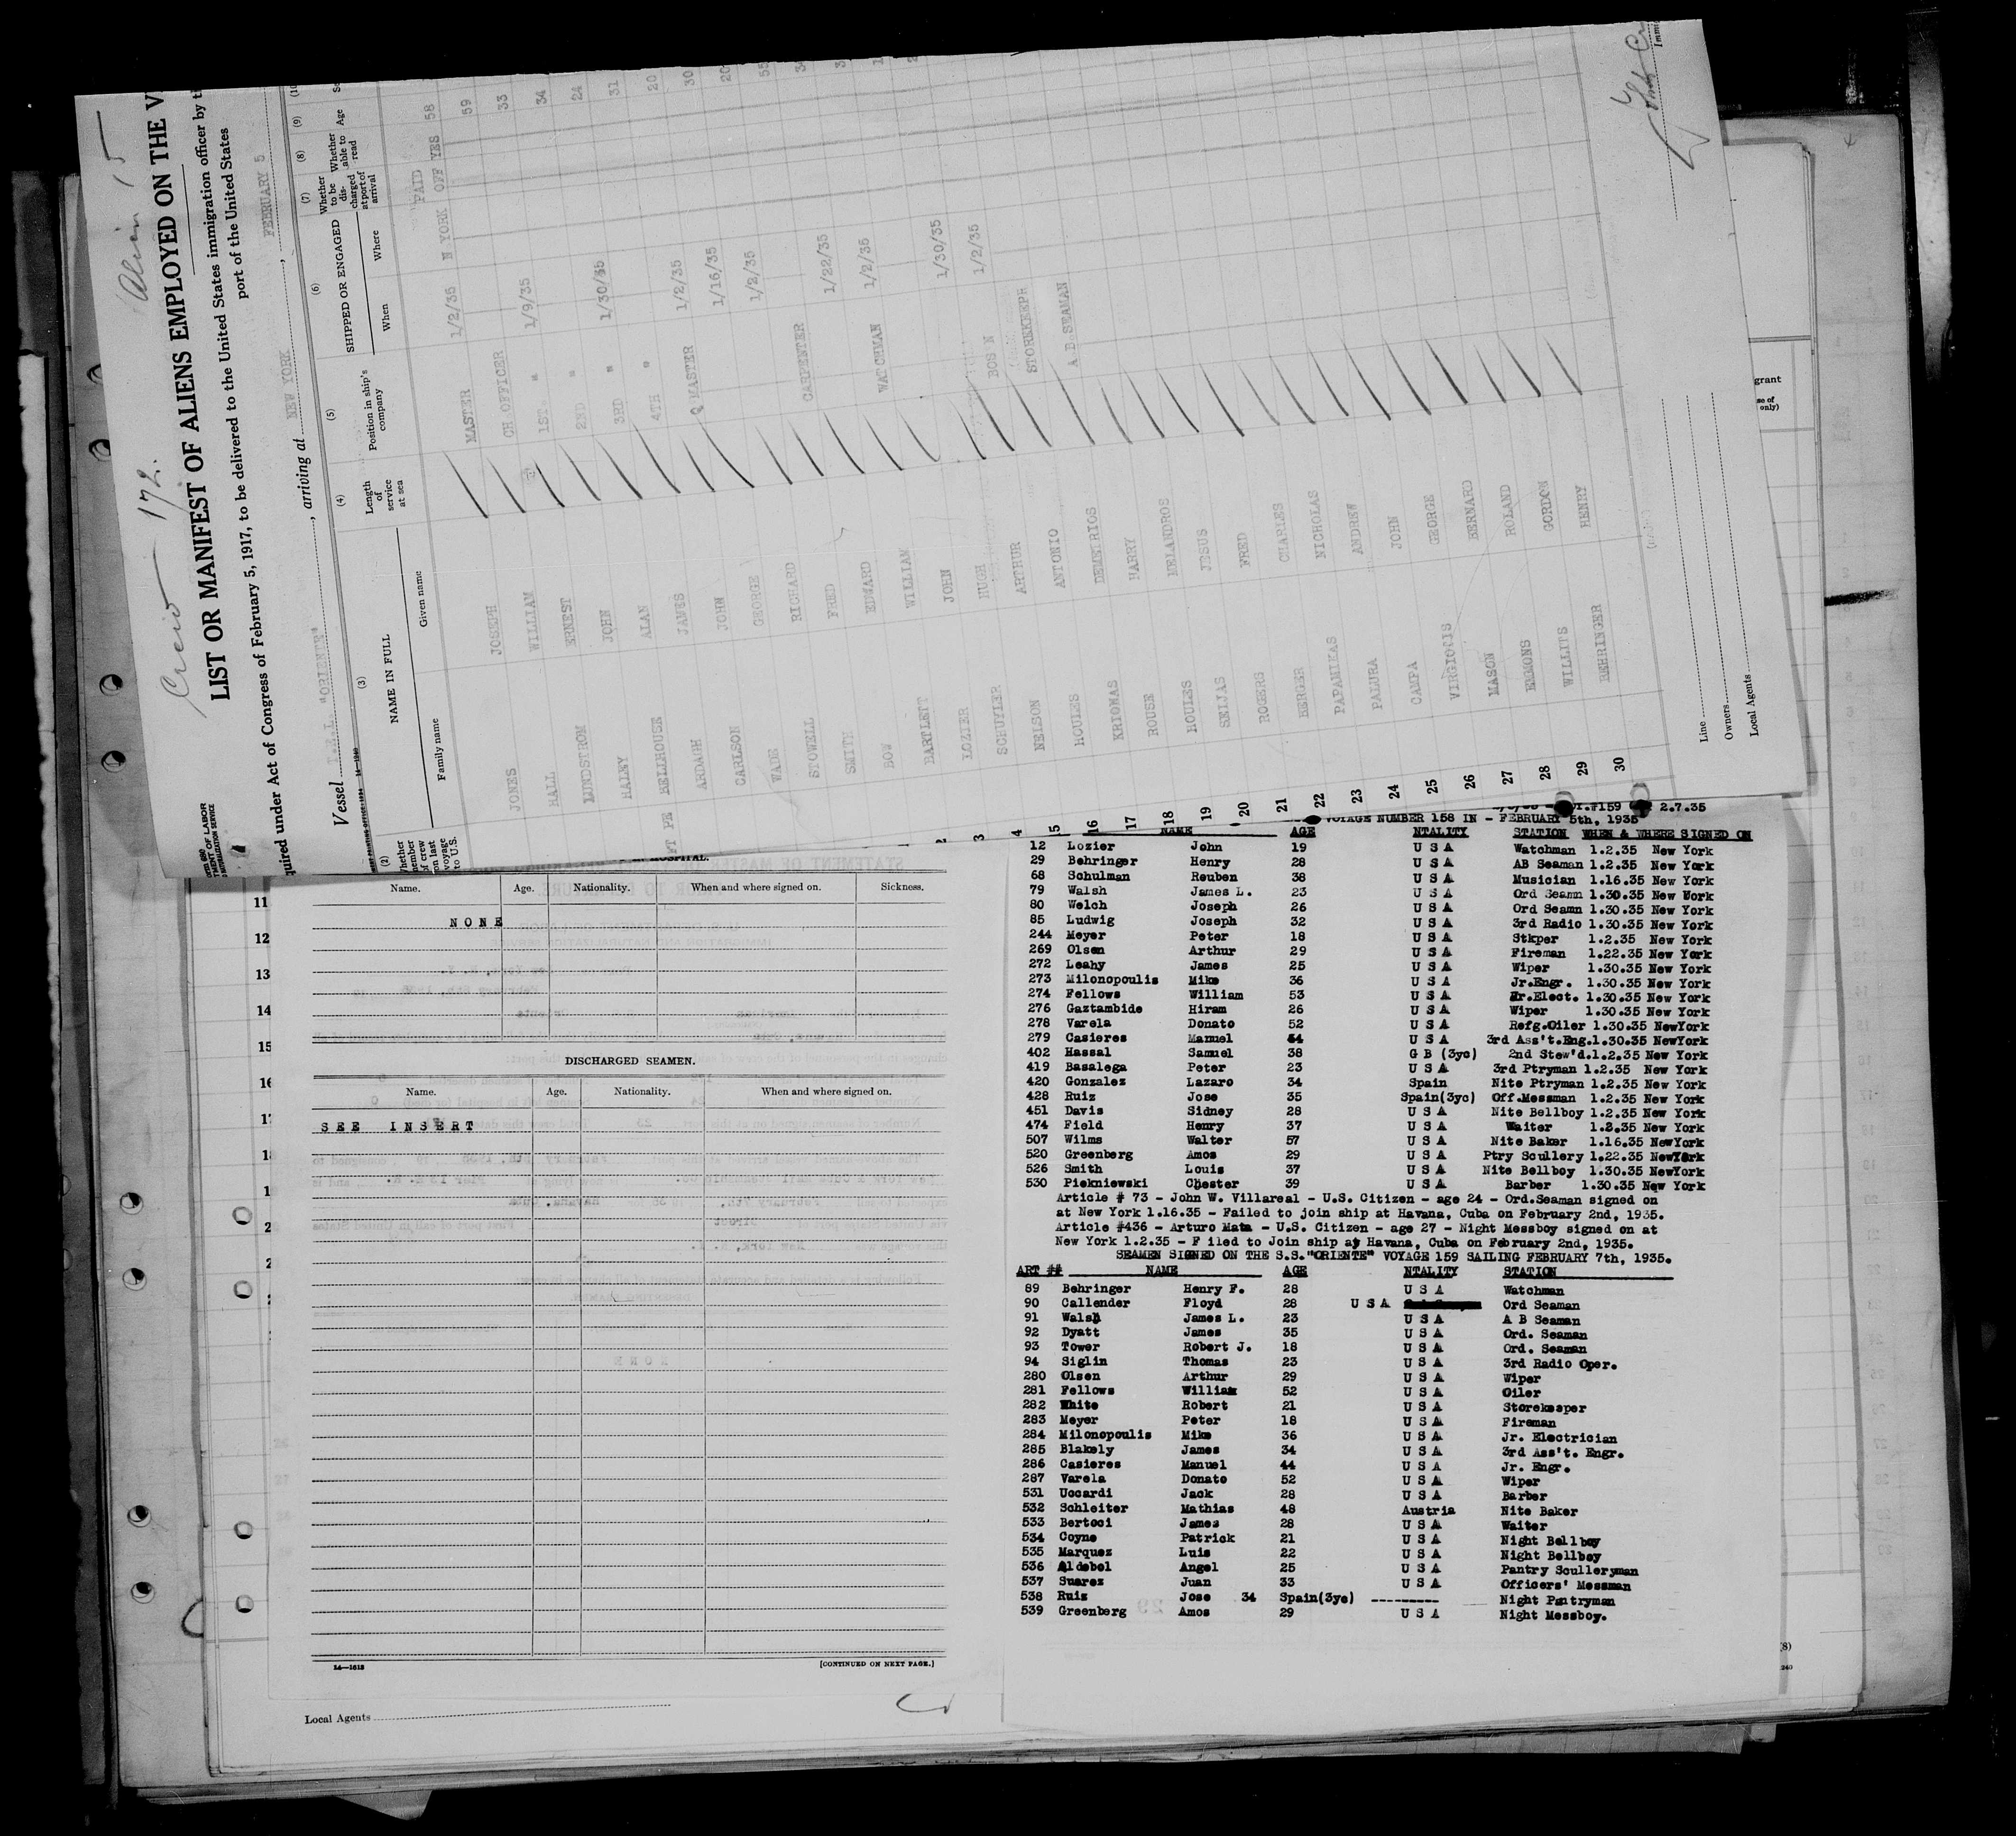 Crew 172. Alien 15
LIST OR MANIFEST OF ALIENS EMPLOYED ON THE V
quired under Act of Congress of February 5, 1917, to be delivered to the United States immigration officer by t
port of the United States
Vessel "ORIENTE", arriving at NEW YORK, FEBRUARY 5
(2) (3) (4) (5) (6) (7) (8) (9) (10
NAME IN FULL
Family name Given name
Length of service at sea
Position in ship's company
SHIPPED OR ENGAGED
When Where
Whether to be discharged at port of arrival
Whether able to read
Age
JONES JOSEPH MASTER 1/2/35 N YORK PAID OFF YES 58
HALL WILLIAM CH OFFICER 59
LUNDSTROM ERNEST 1ST. " 1/9/35 33
HALEY JOHN 2ND " 34
HELLHOUSE ALAN 3RD " 1/30/35 24
ARDAGH JAMES 4TH " 31
CARLSON JOHN Q MASTER 1/2/35 20
WADE GEORGE 1/16/35 30
STOWELL RICHARD 1/2/35
SMITH FRED CARPENTER
BOW EDWARD 1/22/35
BARTLETT WILLIAM WATCHMAN 1/2/35
LOZIER JOHN
SCHUYLER HUGH 1/30/35
NELSON ARTHUR BOS N 1/2/35
HOULES ANTONIO STOREKEEPR
KRIONAS DEMETRIOS A B SEAMAN
ROUSE HARRY
HOULES MELANDROS
SEIJAS JESUS
ROGERS FRED
BERGER CHARLES
PAPANIKAS NICHOLAS
PALURA ANDREW
CAMPA JOHN
VIRGIOTIS GEORGE
MASON BERNARD
EMMONS ROLAND
WILLITS GORDON
BEHRINGER HENRY
Line
Owners
Local Agents
Name. Age. Nationality. When and where signed on. Sickness.
NONE
DISCHARGED SEAMEN.
Name. Age. Nationality. When and where signed on.
SEE INSERT
14—1613 [CONTINUED ON NEXT PAGE.]
Local Agents
VOYAGE NUMBER 158 IN - FEBRUARY 5th, 1935
NAME AGE NTALITY STATION WHEN & WHERE SIGNED ON
12 Lozier John 19 U S A Watchman 1.2.35 New York
29 Behringer Henry 28 U S A AB Seaman 1.2.35 New York
68 Schulman Reuben 38 U S A Musician 1.16.35 New York
79 Walsh James L. 23 U S A Ord Seamn 1.30.35 New York
80 Welch Joseph 26 U S A Ord Seamn 1.30.35 New York
85 Ludwig Joseph 32 U S A 3rd Radio 1.30.35 New York
244 Meyer Peter 18 U S A Stkper 1.2.35 New York
269 Olsen Arthur 29 U S A Fireman 1.22.35 New York
272 Leahy James 25 U S A Wiper 1.30.35 New York
273 Milonopoulis Mike 36 U S A Jr.Engr. 1.30.35 New York
274 Fellows William 53 U S A Jr.Elect. 1.30.35 New York
276 Gaztambide Hiram 26 U S A Wiper 1.30.35 New York
278 Varela Donato 52 U S A Refg.Oiler 1.30.35 NewYork
279 Casieres Manuel 44 U S A 3rd Ass't.Eng.1.30.35 NewYork
402 Hassal Samuel 38 G B (3yc) 2nd Stew'd.1.2.35 New York
419 Basalega Peter 23 U S A 3rd Ptryman 1.2.35 New York
420 Gonzalez Lazaro 34 Spain Nite Ptryman 1.2.35 New York
428 Ruiz Jose 35 Spain(3yc) Off.Messman 1.2.35 New York
451 Davis Sidney 28 U S A Nite Bellboy 1.2.35 New York
474 Field Henry 37 U S A Waiter 1.2.35 New York
507 Wilms Walter 57 U S A Nite Baker 1.16.35 NewYork
520 Greenberg Amos 29 U S A Ptry Scullery 1.22.35 NewYork
526 Smith Louis 37 U S A Nite Bellboy 1.30.35 NewYork
530 Piekniewski Chester 39 U S A Barber 1.30.35 New York
Article # 73 - John W. Villareal - U.S. Citizen - age 24 - Ord.Seaman signed on
at New York 1.16.35 - Failed to join ship at Havana, Cuba on February 2nd, 1935.
Article #436 - Arturo Mata - U.S. Citizen - age 27 - Night Messboy signed on at
New York 1.2.35 - F iled to Join ship at Havana, Cuba on February 2nd, 1935.
SEAMEN SIGNED ON THE S.S."ORIENTE" VOYAGE 159 SAILING FEBRUARY 7th, 1935.
ART ## NAME AGE NTALITY STATION
89 Behringer Henry F. 28 U S A Watchman
90 Callender Floyd 28 U S A Ord Seaman
91 Walsh James L. 23 U S A A B Seaman
92 Dyatt James 35 U S A Ord. Seaman
93 Tower Robert J. 18 U S A Ord. Seaman
94 Siglin Thomas 23 U S A 3rd Radio Oper.
280 Olsen Arthur 29 U S A Wiper
281 Fellows William 52 U S A Oiler
282 White Robert 21 U S A Storekeeper
283 Meyer Peter 18 U S A Fireman
284 Milonopoulis Mike 36 U S A Jr. Electrician
285 Blakely James 34 U S A 3rd Ass't. Engr.
286 Casieres Manuel 44 U S A Jr. Engr.
287 Varela Donato 52 U S A Wiper
531 Uccardi Jack 28 U S A Barber
532 Schleiter Mathias 48 Austria Nite Baker
533 Bertoci James 28 U S A Waiter
534 Coyne Patrick 21 U S A Night Bellboy
535 Marquez Luis 22 U S A Night Bellboy
536 Aldebol Angel 25 U S A Pantry Sculleryman
537 Suarez Juan 33 U S A Officers' Messman
538 Ruiz Jose 34 Spain(3yc) --------- Night Pantryman
539 Greenberg Amos 29 U S A Night Messboy.